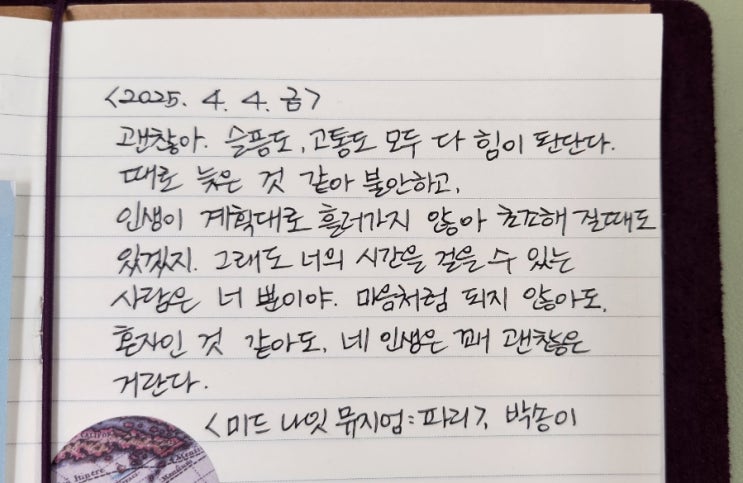 <2025. 4. 4. 금>
괜찮아. 슬픔도, 고통도 모두 다 힘이 된단다.
때로 늦은 것 같아 불안하고,
인생이 계획대로 흘러가지 않아 초조해 질때도
있겠지. 그래도 너의 시간을 걸을 수 있는
사람은 너 뿐이야. 마음처럼 되지 않아도,
혼자인 것 같아도, 네 인생은 꽤 괜찮은
거란다.
<미드 나잇 뮤지엄: 파리>, 박송이